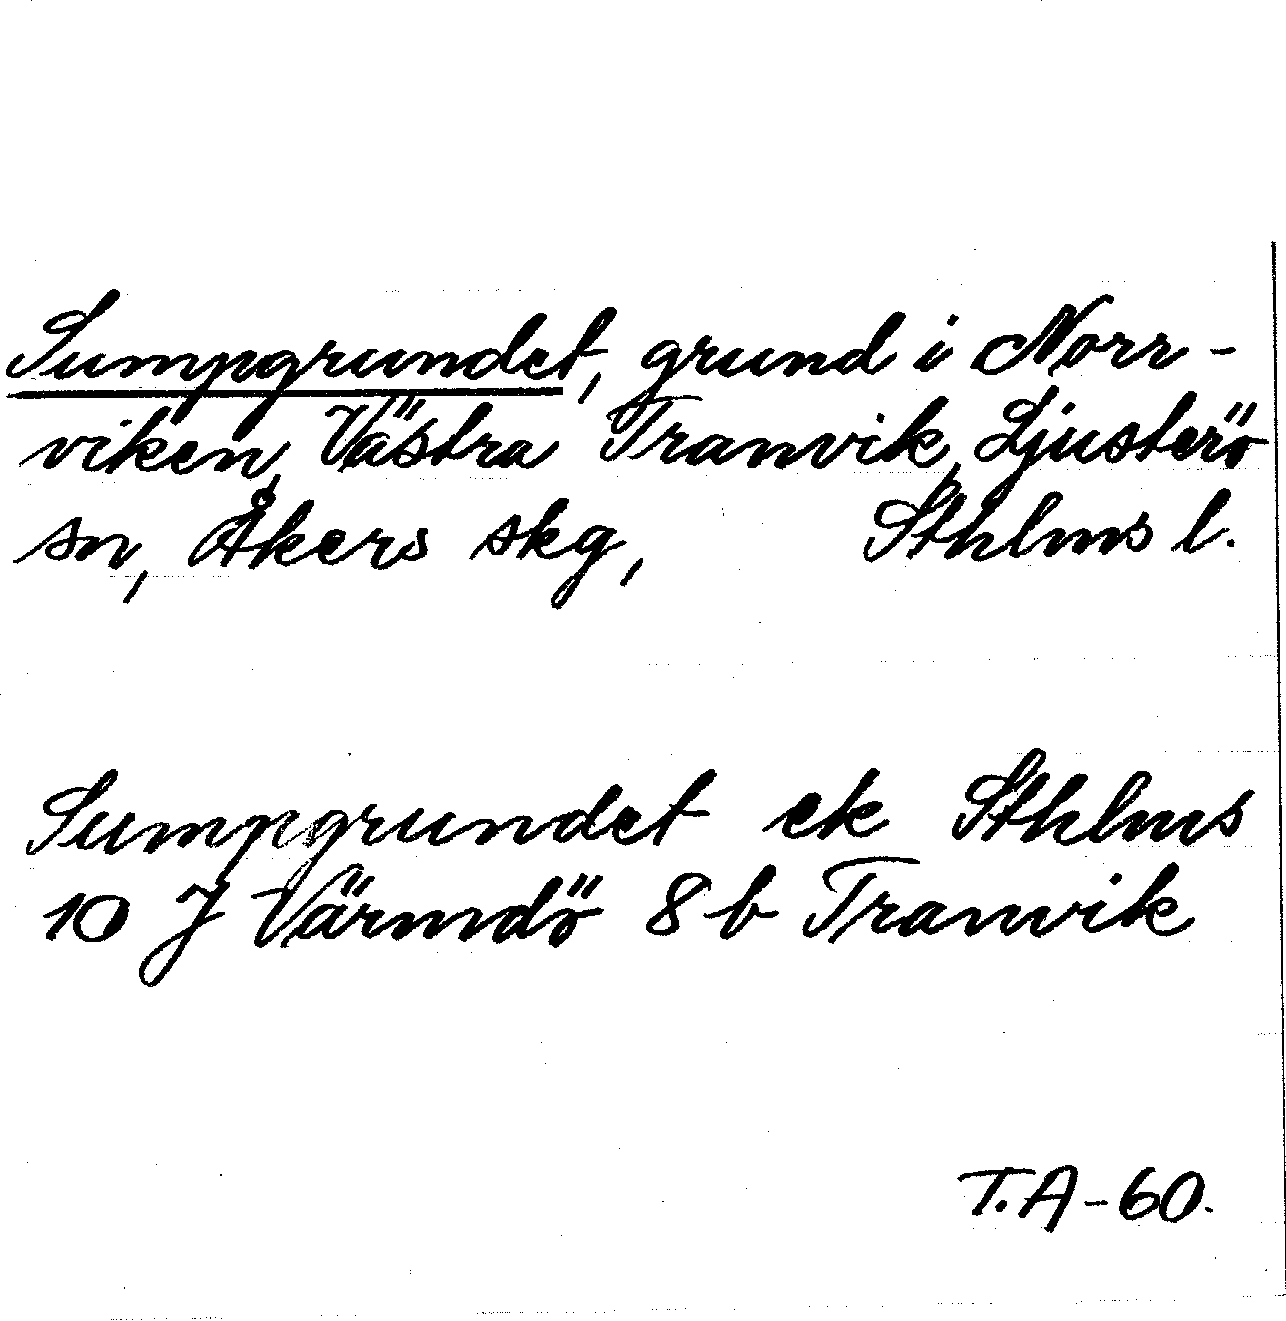 Sumpgrundet, grund i Norr-
viken, Västra Tranvik, Ljusterö
sn, Åkers skg, Sthlms l.
Sumpgrundet ek Sthlms
10 J Värmdö 8 b Tranvik
T.A-60.